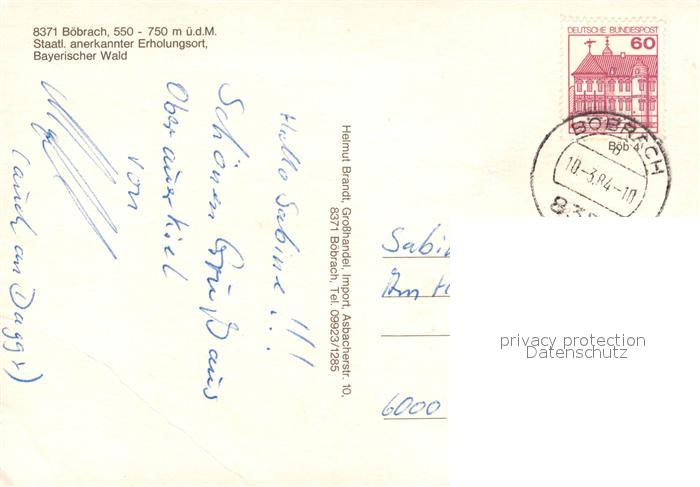 8371 Böbrach, 550 - 750 m ü.d.M.
Staatl. anerkannter Erholungsort,
Bayerischer Wald
DEUTSCHE BUNDESPOST
60
BÖBRACH
Böb 4
b
10.-3.84-10
835
Hallo Sabine!!!
Schönen Gruß aus
Oberauerkiel
von
(auch an Daggy)
Helmut Brandt, Großhandel, Import, Asbacherstr. 10,
8371 Böbrach, Tel. 09923/1285
Sabin
Am
6000
privacy protection
Datenschutz